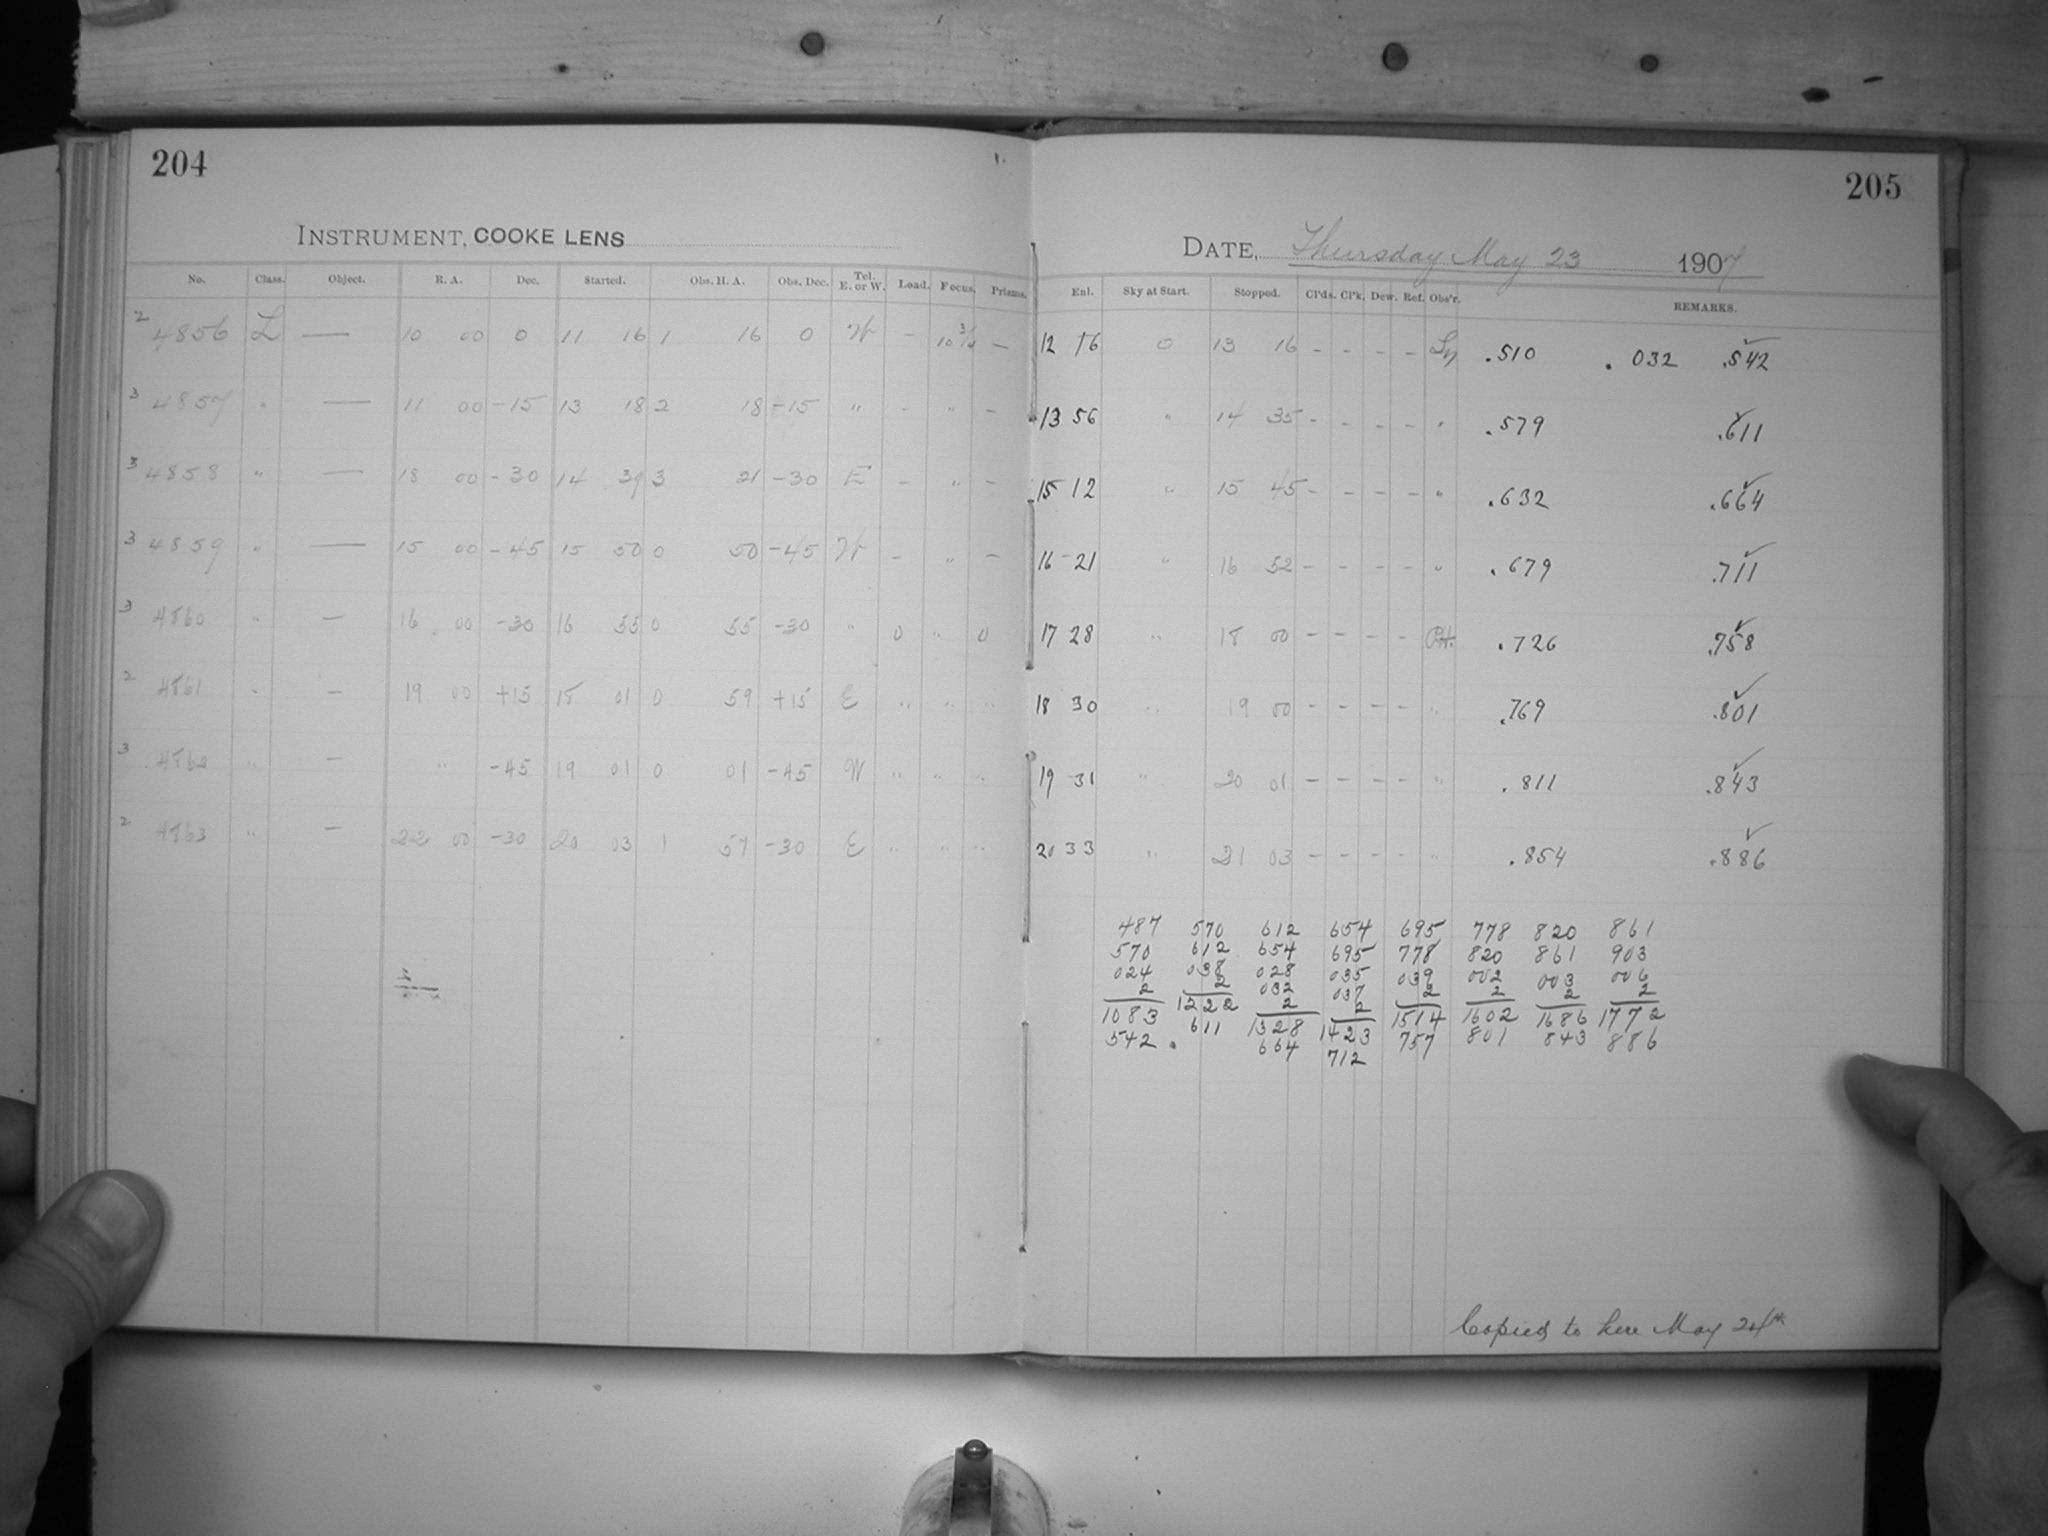 204
INSTRUMENT, COOKE LENS
No. Class. Object. R. A. Dec. Started. Obs. H. A. Obs. Dec. Tel. E. or W. Load. Focus. Prisms.
2 4856 L — 10 00 0 11 16 1 16 0 W - 10 3/4 —
3 4857 " — 11 00 -15 13 18 2 18 -15 " - " -
3 4858 " — 18 00 -30 14 39 3 21 -30 E - " -
3 4859 " — 15 00 -45 15 50 0 50 -45 W - " -
3 4860 " — 16 00 -30 16 55 0 55 -30 " 0 " 0
2 4861 " — 19 00 +15 18 01 0 59 +15 E " " "
3 4862 " — " -45 19 01 0 01 -45 W " " "
2 4863 " — 22 00 -30 20 03 1 57 -30 E " " "
205
DATE, Thursday May 23 1907
Enl. Sky at Start. Stopped. Cl'ds. Cl'k. Dew. Ref. Obs'r. REMARKS.
12 16 0 13 16 - - - - .510 .032 .542
13 56 " 14 35 - - - - " .579 .611
15 12 " 15 45 - - - - " .632 .664
16 21 " 16 52 - - - - " .679 .711
17 28 " 18 00 - - - - .726 .758
18 30 " 19 00 - - - - " .769 .801
19 31 " 20 01 - - - - " .811 .843
20 33 " 21 03 - - - - " .854 .886
487 570 612 654 695 778 820 861
570 612 654 695 778 820 861 903
024 038 028 035 039 002 003 006
2 2 032 037 2 2 2 2
1083 1222 2 2 1514 1602 1686 1772
542 611 1328 1423 757 801 843 886
664 712
Copied to here May 24th